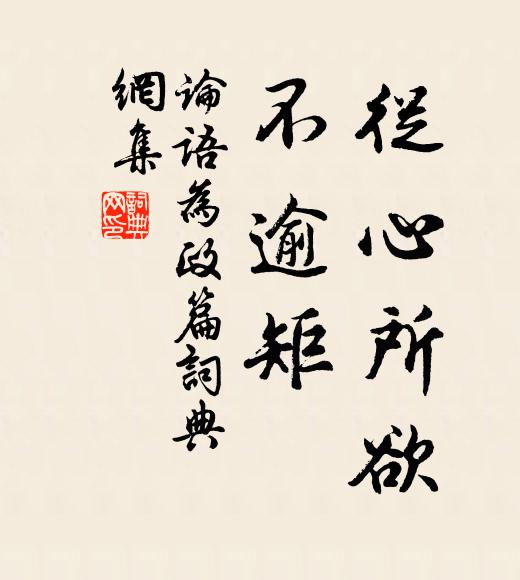 從心所欲
不逾矩
論語為政篇詞典
網集
詞典
网印